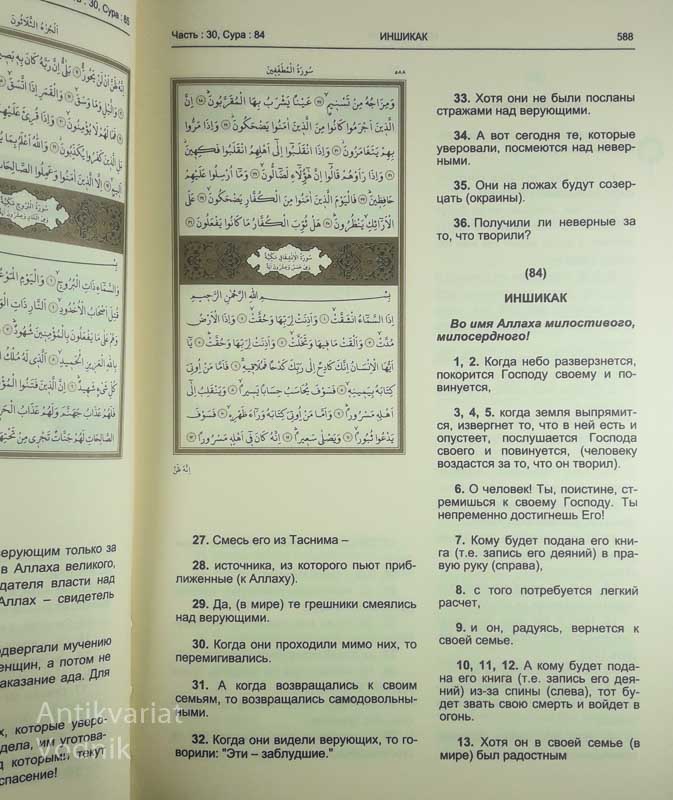 : 30, Сура : 85
الجزء الثلاثون
سورة البروج مكية
верующим только за
в Аллаха великого,
дателя власти над
Аллах – свидетель
одвергали мучению
енщин, а потом не
аказание ада. Для
х, которые уверо-
дела, им уготова-
д которыми текут
спасение!
Часть : 30, Сура : 84
ИНШИКАК
588
سورة المطففين
٥٨٨
وَمِزَاجُهُ مِنْ تَسْنِيمٍ ﴿٢٧﴾ عَيْنًا يَشْرَبُ بِهَا الْمُقَرَّبُونَ ﴿٢٨﴾ إِنَّ
الَّذِينَ أَجْرَمُوا كَانُوا مِنَ الَّذِينَ آمَنُوا يَضْحَكُونَ ﴿٢٩﴾ وَإِذَا مَرُّوا
بِهِمْ يَتَغَامَزُونَ ﴿٣٠﴾ وَإِذَا انْقَلَبُوا إِلَى أَهْلِهِمُ انْقَلَبُوا فَكِهِينَ
﴿٣١﴾ وَإِذَا رَأَوْهُمْ قَالُوا إِنَّ هَؤُلَاءِ لَضَالُّونَ ﴿٣٢﴾ وَمَا أُرْسِلُوا عَلَيْهِمْ
حَافِظِينَ ﴿٣٣﴾ فَالْيَوْمَ الَّذِينَ آمَنُوا مِنَ الْكُفَّارِ يَضْحَكُونَ ﴿٣٤﴾ عَلَى
الْأَرَائِكِ يَنْظُرُونَ ﴿٣٥﴾ هَلْ ثُوِّبَ الْكُفَّارُ مَا كَانُوا يَفْعَلُونَ ﴿٣٦﴾
سورة الانشقاق مكية
وهي خمس وعشرون آية
بِسْمِ اللَّهِ الرَّحْمَنِ الرَّحِيمِ
إِذَا السَّمَاءُ انْشَقَّتْ ﴿١﴾ وَأَذِنَتْ لِرَبِّهَا وَحُقَّتْ ﴿٢﴾ وَإِذَا الْأَرْضُ
مُدَّتْ ﴿٣﴾ وَأَلْقَتْ مَا فِيهَا وَتَخَلَّتْ ﴿٤﴾ وَأَذِنَتْ لِرَبِّهَا وَحُقَّتْ ﴿٥﴾ يَا
أَيُّهَا الْإِنْسَانُ إِنَّكَ كَادِحٌ إِلَى رَبِّكَ كَدْحًا فَمُلَاقِيهِ ﴿٦﴾ فَأَمَّا مَنْ أُوتِيَ
كِتَابَهُ بِيَمِينِهِ ﴿٧﴾ فَسَوْفَ يُحَاسَبُ حِسَابًا يَسِيرًا ﴿٨﴾ وَيَنْقَلِبُ إِلَى
أَهْلِهِ مَسْرُورًا ﴿٩﴾ وَأَمَّا مَنْ أُوتِيَ كِتَابَهُ وَرَاءَ ظَهْرِهِ ﴿١٠﴾ فَسَوْفَ
يَدْعُوا ثُبُورًا ﴿١١﴾ وَيَصْلَى سَعِيرًا ﴿١٢﴾ إِنَّهُ كَانَ فِي أَهْلِهِ مَسْرُورًا ﴿١٣﴾
إِنَّهُ ظَنَّ
27. Смесь его из Таснима –
28. источника, из которого пьют приб-
лиженные (к Аллаху).
29. Да, (в мире) те грешники смеялись
над верующими.
30. Когда они проходили мимо них, то
перемигивались.
31. А когда возвращались к своим
семьям, то возвращались самодовольны-
ными.
32. Когда они видели верующих, то го-
ворили: "Эти – заблудшие."
33. Хотя они не были посланы
стражами над верующими.
34. А вот сегодня те, которые
уверовали, посмеются над невер-
ными.
35. Они на ложах будут созер-
цать (окраины).
36. Получили ли неверные за
то, что творили?
(84)
ИНШИКАК
Во имя Аллаха милостивого,
милосердного!
1, 2. Когда небо разверзнется,
покорится Господу своему и по-
винуется,
3, 4, 5. когда земля выпрямит-
ся, извергнет то, что в ней есть и
опустеет, послушается Господа
своего и повинуется, (человеку
воздастся за то, что он творил).
6. О человек! Ты, поистине, ст-
ремишься к своему Господу. Ты
непременно достигнешь Его!
7. Кому будет подана его кни-
га (т.е. запись его деяний) в пра-
вую руку (справа),
8. с того потребуется легкий
расчет,
9. и он, радуясь, вернется к
своей семье.
10, 11, 12. А кому будет пода-
на его книга (т.е. запись его дея-
ний) из-за спины (слева), тот бу-
дет звать свою смерть и войдет в
огонь.
13. Хотя он в своей семье (в
мире) был радостным
Antikvariat
Vodnik